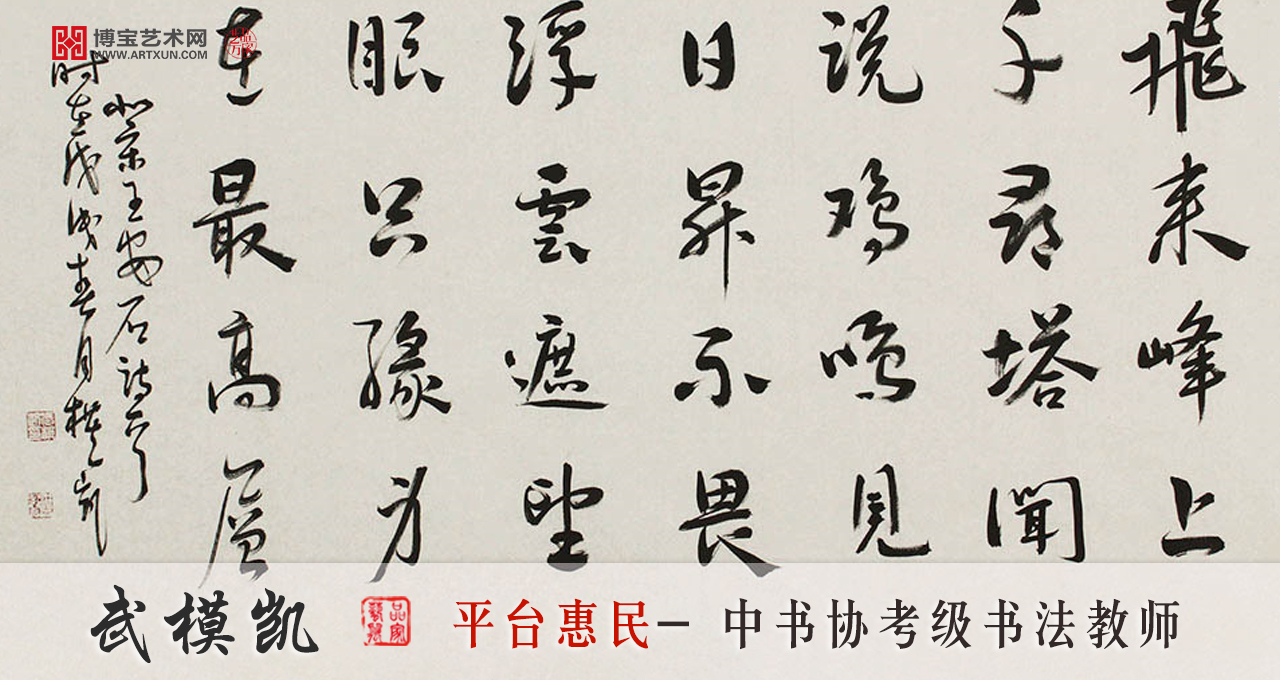 博宝艺术网
WWW.ARTXUN.COM
飛来峰上
千尋塔聞
说鸡鸣見
日昇不畏
浮雲遮望
眼只緣身
在最高層
北宋王安石诗
时在戊戌春月模凯
武模凯
平台惠民– 中书协考级书法教师